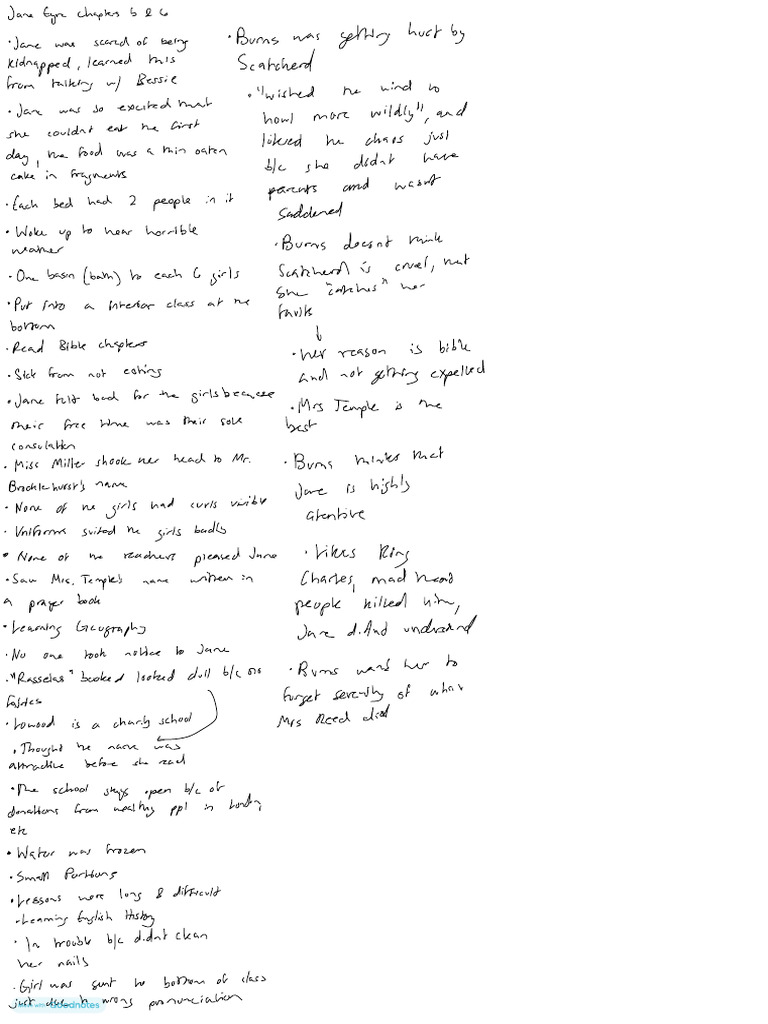 Jane Eyre chapters 5 & 6
• Jane was scared of being
kidnapped, learned this
from talking w/ Bessie
• Jane was so excited that
she couldnt eat the first
day, the food was a thin oaten
cake in fragments
• Each bed had 2 people in it
• Woke up to hear horrible
weather
• One basin (bath) to each 6 girls
• Put into a inferior class at the
bottom
• Read Bible chapters
• Sick from not eating
• Jane felt bad for the girls because
their free time was their sole
consolation
• Miss Miller shook her head to Mr.
Brocklehurst's name
• None of the girls had curls visible
• Uniforms suited the girls badly
• None of the teachers pleased Jane
• Saw Mrs. Temple's name written in
a prayer book
• Learning Geography
• No one took notice to Jane
• "Rasselas" booked looked dull b/c no
fairies
• Lowood is a charity school
• Thought the name was
attractive before she read
• The school stays open b/c of
donations from wealthy ppl in London,
etc
• Water was frozen
• Small Portions
• Lessons were long & difficult
• Learning English History
• In trouble b/c didnt clean
her nails
• Girl was sent to bottom of class
just due to wrong pronunciation
• Burns was getting hurt by
Scatcherd
• "wished the wind to
howl more wildly", and
liked the chaos just
b/c she didnt have
parents and wasnt
saddened
• Burns doesnt think
Scatcherd is cruel, that
she "catches" her
faults
↓
• her reason is bible
and not getting expelled
• Mrs Temple is the
best
• Burns thinks that
Jane is highly
atentive
• Likes King
Charles, mad
people killed him,
Jane didnt understand
• Burns wants her to
forget severity of what
Mrs Reed did
Made with Goodnotes